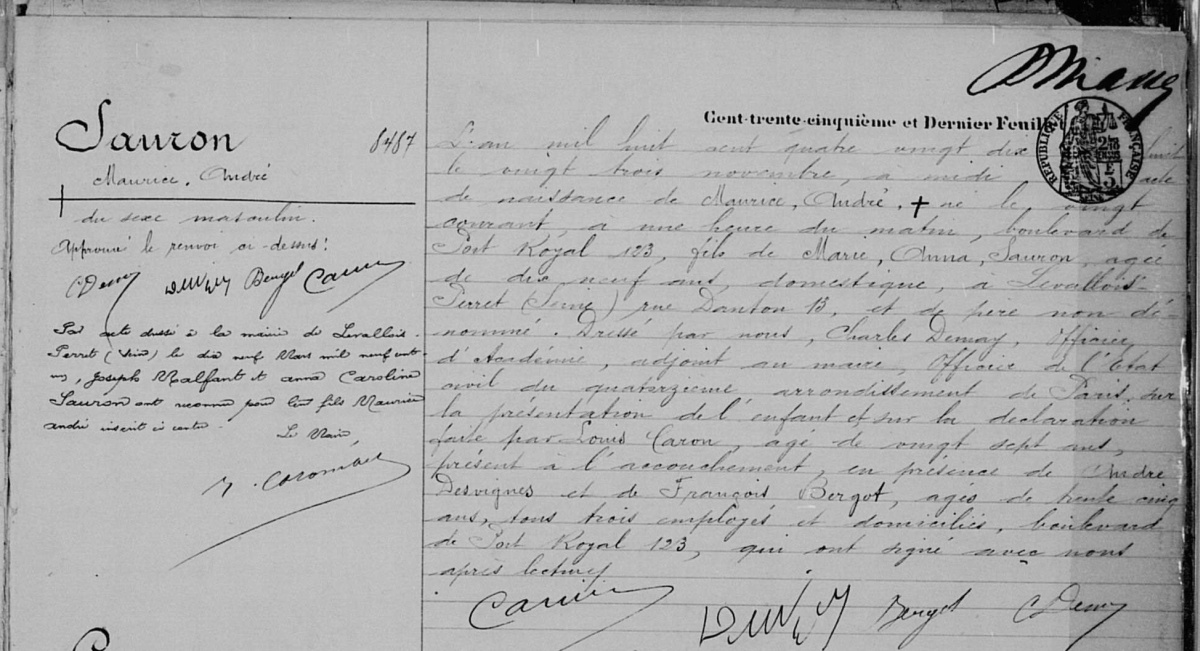 Cent-trente-cinquième et Dernier Feuillet
RÉPUBLIQUE FRANÇAISE
Sauron
8487
Maurice, André
du sexe masculin.
Approuvé le renvoi ci-dessus!
Par acte dressé à la mairie de Levallois-
Perret (Seine) le dix neuf Mars mil neuf cent
un, Joseph Malfant et anna Caroline
Sauron ont reconnu pour leur fils Maurice
andré inscrit ci contre.
Le Maire,
L'an mil huit cent quatre vingt dix huit
le vingt trois novembre, à midi acte
de naissance de Maurice, André, + né le vingt
courant, à une heure du matin, boulevard de
Port Royal 123, fils de Marie, Anna, Sauron, agée
de dix neuf ans, domestique, à Levallois-
Perret (Seine) rue Danton 13, et de père non dé-
nommé. Dressé par nous, Charles Demay, Officier
d'Académie, adjoint au maire, Officier de l'Etat
civil du quatorzième arrondissement de Paris, sur
la présentation de l'enfant et sur la déclaration
faite par Louis Caron, agé de vingt sept ans,
présent à l'accouchement, en présence de André
Desvignes et de François Bergot, agés de trente cinq
ans, tous trois employés et domiciliés, boulevard
de Port Royal 123, qui ont signé avec nous
après lecture